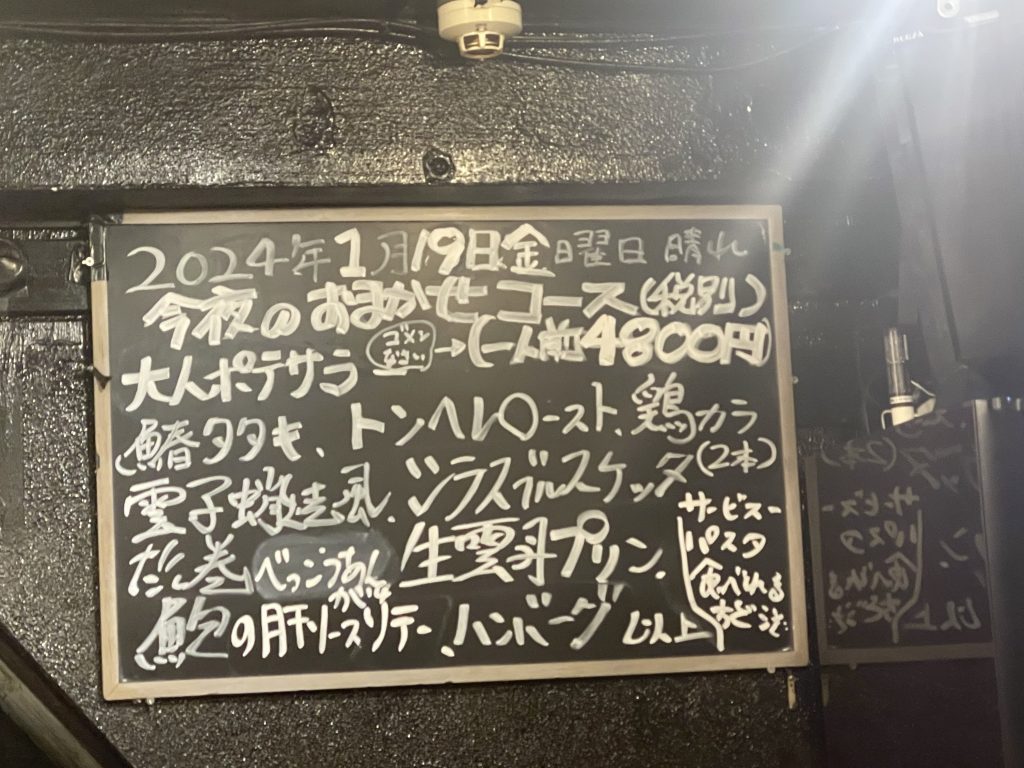 2024年1月19日金曜日 晴れ
今夜のおまかせコース(税別)
ゴメン
→(一人前4800円)
大人ポテサラ
鰆タタキ、トンヘレロースト、鶏カラ
(2本)
雲子 風、シラスブルスケッタ
だし巻 べっこうあん
がけ
生雲丹プリン、
鮑の肝リースリテー、ハンバーグ 以上
サービスー
パスタ
食べれる
かどうぞ